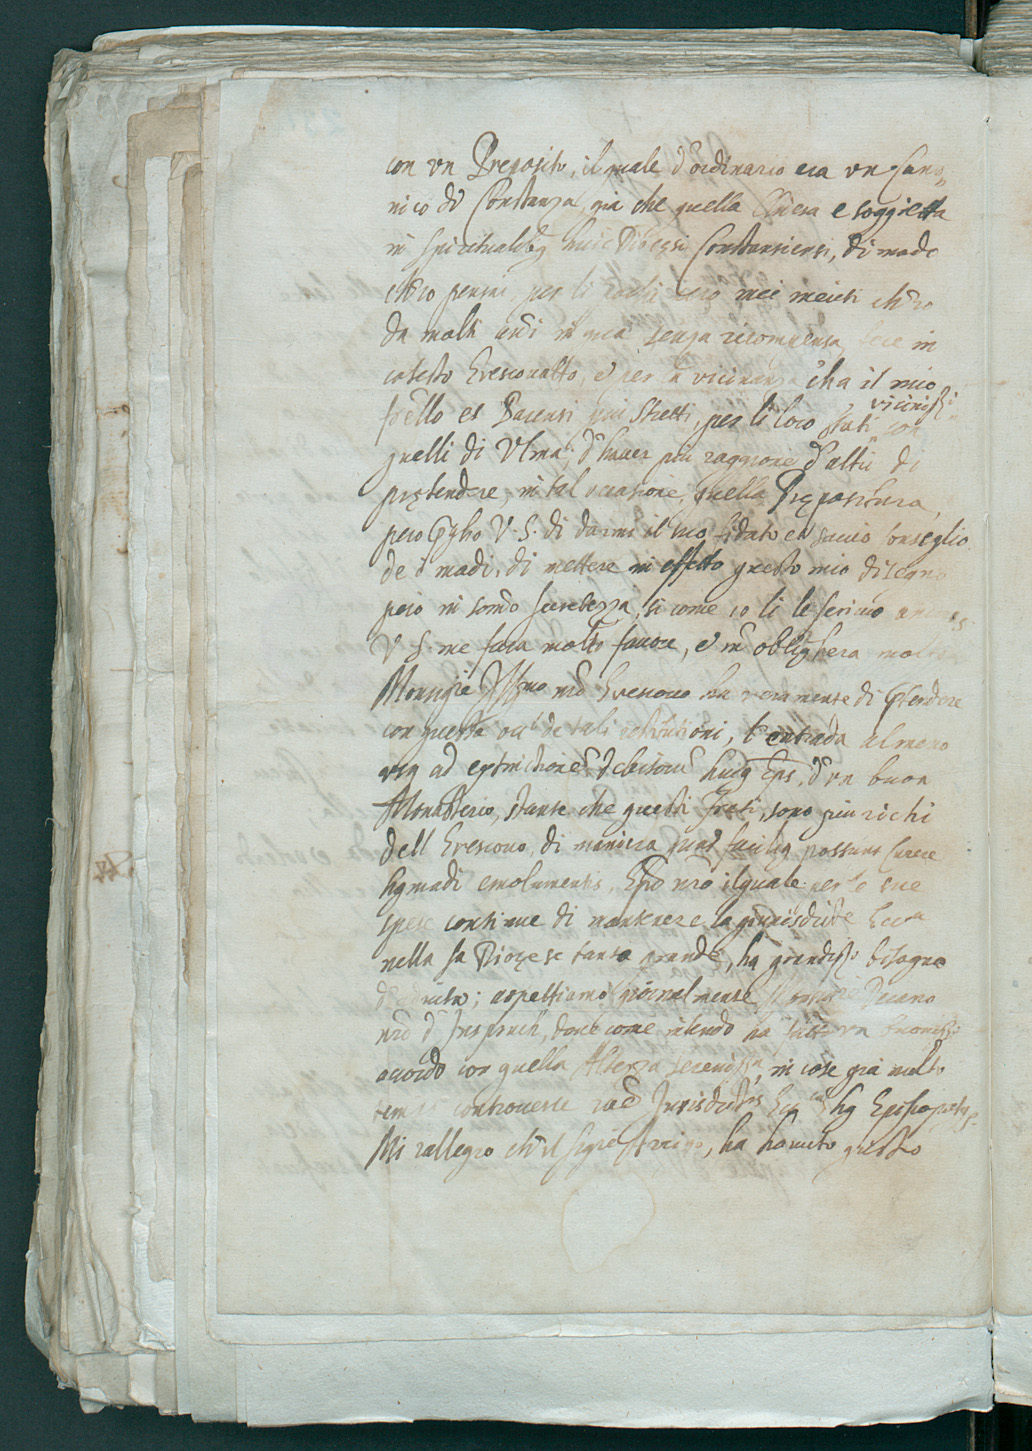 con vn Preposito, il quale d'ordinario era vn Cano-
nico di Constanza, gia che quella Chiesa e soggietta
in spiritualibus huic Diocesi Constansiensi, di modo
ch'io per li mei meriti ch'io
da molti anni in qua senza ricompensa, feci in
cotesto Vescouatto, e per la vicinanza ch'ha il mio
frello et Parenti piu stretti, per li loro stati vicinissi: con
quelli di Vlma, d'hauer piu raggione d'altri di
pretendere, in tal occasione, quella Prepositura,
pero prgho V. S. di darmi il suo fidato et sauio conseglio
de i modi, di mettere in effetto questo mio disegno
pero in somo secretezza, si come io li le scriuo
V S. me fara molto fauore, e m'obblighera molto
Monsigre Illmo nro Vescouo ha veramente di prtendere
con questa occ. de tali restitutioni, l'entrada almeno
vnq ad extinctionem debitorum huiq Eps. d'vn buon
Monasterio, stante che questi Preti, sono piu richi
dell Vescouo, di maniera quod faciliq possunt carere
hqmodi emolumentis, Epo nro ilquale per le sue
spese continue di mantenere la giurisditte Ecca
nella sa Diozese tanto grande, ha grandisso bisogno
d'adiuto; aspettiamo giornalmente Monsigre Decano
nro d'Inspruch, doue come intendo ha fatto vn buonisso
accordo con quella Altezza serenissa, in cose gia molto
tempo controuerse
Mi rallegro ch'il sigre Amigo, ha hauuto questo